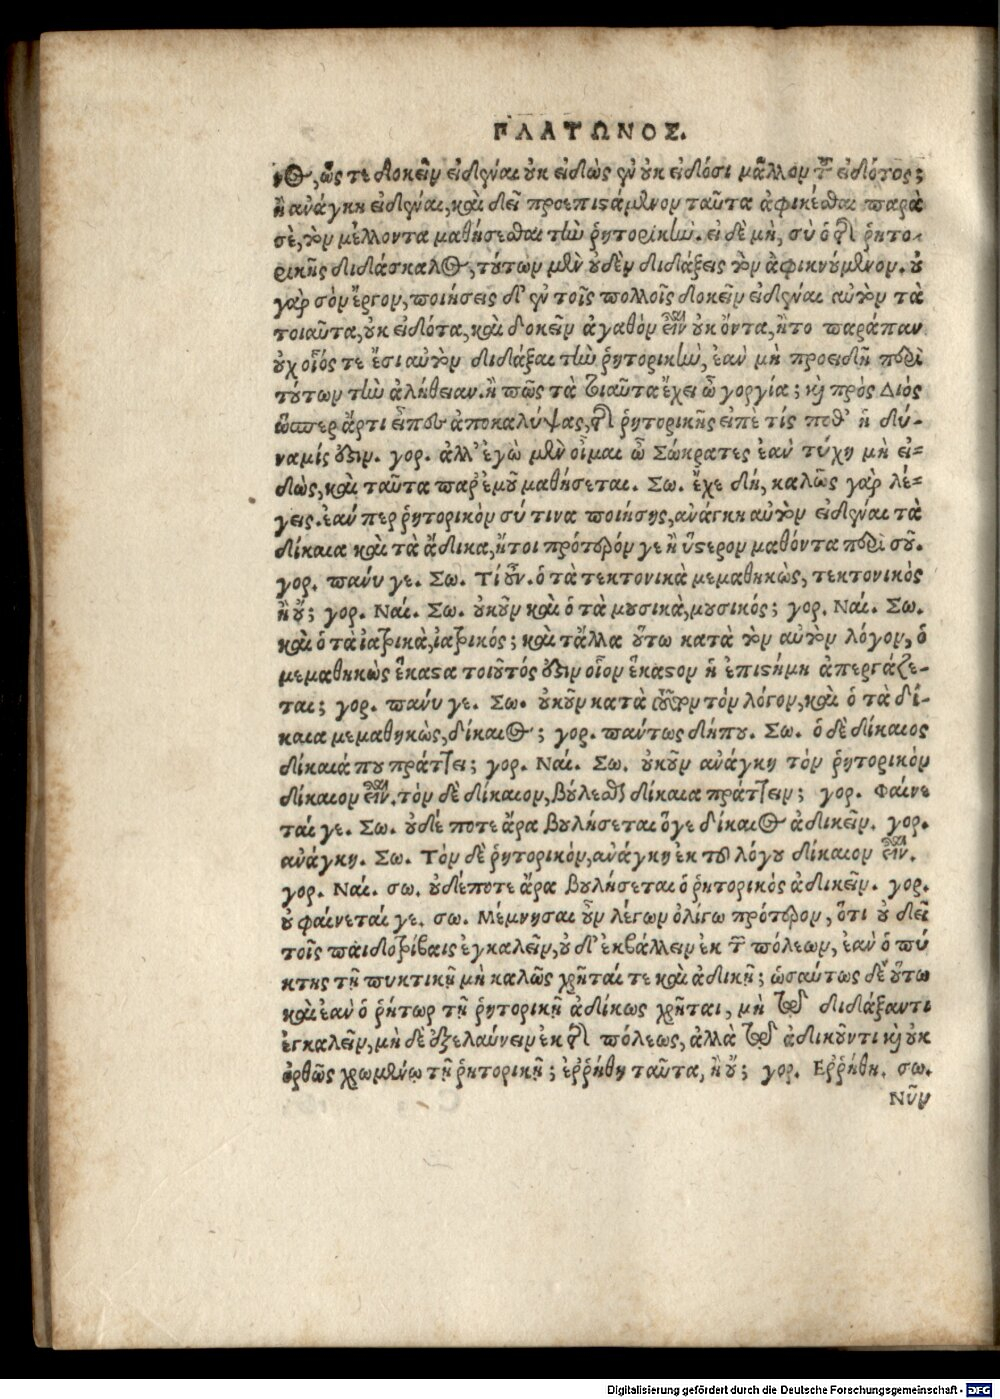 ΠΛΑΤΩΝΟΣ.
νος, ὥς τε δοκεῖν εἰδέναι οὐκ εἰδὼς ἐν οὐκ εἰδόσι μᾶλλον τοῦ εἰδότος;
ἢ ἀνάγκη εἰδέναι, καὶ δεῖ προεπιστάμενον ταῦτα ἀφικέσθαι παρὰ
σὲ, τὸν μέλλοντα μαθήσεσθαι τὴν ῥητορικήν. εἰ δὲ μὴ, σὺ ὁ τῆς ῥητο-
ρικῆς διδάσκαλος, τούτων μὲν οὐδὲν διδάξεις τὸν ἀφικνούμενον. οὐ
γὰρ σὸν ἔργον, ποιήσεις δ' ἐν τοῖς πολλοῖς δοκεῖν εἰδέναι αὐτὸν τὰ
τοιαῦτα, οὐκ εἰδότα, καὶ δοκεῖν ἀγαθὸν εἶναι οὐκ ὄντα, ἢ το παράπαν
οὐχ οἷός τε ἔσῃ αὐτὸν διδάξαι τὴν ῥητορικὴν, ἐὰν μὴ προειδῇ περὶ
τούτων τὴν ἀλήθειαν. ἢ πῶς τὰ τοιαῦτα ἔχει ὦ γοργία; καὶ πρὸς Διὸς
ὥσπερ ἄρτι εἶπες ἀποκαλύψας, τῆς ῥητορικῆς εἰπὲ τίς ποθ' ἡ δύ-
ναμίς ἐστιν. γορ. ἀλλ' ἐγὼ μὲν οἶμαι ὦ Σώκρατες ἐὰν τύχῃ μὴ εἰ=
δὼς, καὶ ταῦτα παρ' ἐμοῦ μαθήσεται. Σω. ἔχε δή, καλῶς γὰρ λέ=
γεις. ἐάν περ ῥητορικὸν σύ τινα ποιήσῃς, ἀνάγκη αὐτὸν εἰδέναι τὰ
δίκαια καὶ τὰ ἄδικα, ἤτοι πρότερόν γε ἢ ὕστερον μαθόντα περὶ σοῦ.
γορ. πάνυ γε. Σω. Τί οὖν. ὁ τὰ τεκτονικὰ μεμαθηκὼς, τεκτονικὸς
ἢ οὔ; γορ. Ναί. Σω. οὐκοῦν καὶ ὁ τὰ μουσικὰ, μουσικός; γορ. Ναί. Σω.
καὶ ὁ τὰ ἰατρικὰ, ἰατρικός; καὶ τἄλλα οὕτω κατὰ τὸν αὐτὸν λόγον, ὁ
μεμαθηκὼς ἕκαστα τοιοῦτός ἐστιν οἷον ἕκαστον ἡ ἐπιστήμη ἀπεργάζε-
ται; γορ. πάνυ γε. Σω. οὐκοῦν κατὰ τοῦτον τὸν λόγον, καὶ ὁ τὰ δί-
καια μεμαθηκὼς, δίκαιος; γορ. πάντως δήπου. Σω. ὁ δὲ δίκαιος
δίκαιά που πράττει; γορ. Ναί. Σω. οὐκοῦν ἀνάγκη τὸν ῥητορικὸν
δίκαιον εἶναι. τὸν δὲ δίκαιον, βούλεσθαι δίκαια πράττειν; γορ. Φαίνε
ταί γε. Σω. οὐδέ ποτε ἄρα βουλήσεται ὅγε δίκαιος ἀδικεῖν. γορ.
ἀνάγκη. Σω. Τὸν δὲ ῥητορικὸν, ἀνάγκη ἐκ τοῦ λόγου δίκαιον εἶναι.
γορ. Ναί. σω. οὐδέποτε ἄρα βουλήσεται ὁ ῥητορικὸς ἀδικεῖν. γορ.
οὐ φαίνεταί γε. σω. Μέμνησαι οὖν λέγων ὀλίγῳ πρότερον, ὅτι οὐ δεῖ
τοῖς παιδοτρίβαις ἐγκαλεῖν, οὐδ' ἐκβάλλειν ἐκ τῶν πόλεων, ἐὰν ὁ πύ
κτης τῇ πυκτικῇ μὴ καλῶς χρῆταί τε καὶ ἀδικῇ; ὡσαύτως δὲ οὕτω
καὶ ἐὰν ὁ ῥήτωρ τῇ ῥητορικῇ ἀδίκως χρῆται, μὴ τῷ διδάξαντι
ἐγκαλεῖν, μὴ δὲ ἐξελαύνειν ἐκ τῆς πόλεως, ἀλλὰ τῷ ἀδικοῦντι καὶ οὐκ
ὀρθῶς χρωμένῳ τῇ ῥητορικῇ; ἐῤῥήθη ταῦτα, ἢ οὔ; γορ. Ἐῤῥήθη. σω.
Νῦν
Digitalisierung gefördert durch die Deutsche Forschungsgemeinschaft - DFG